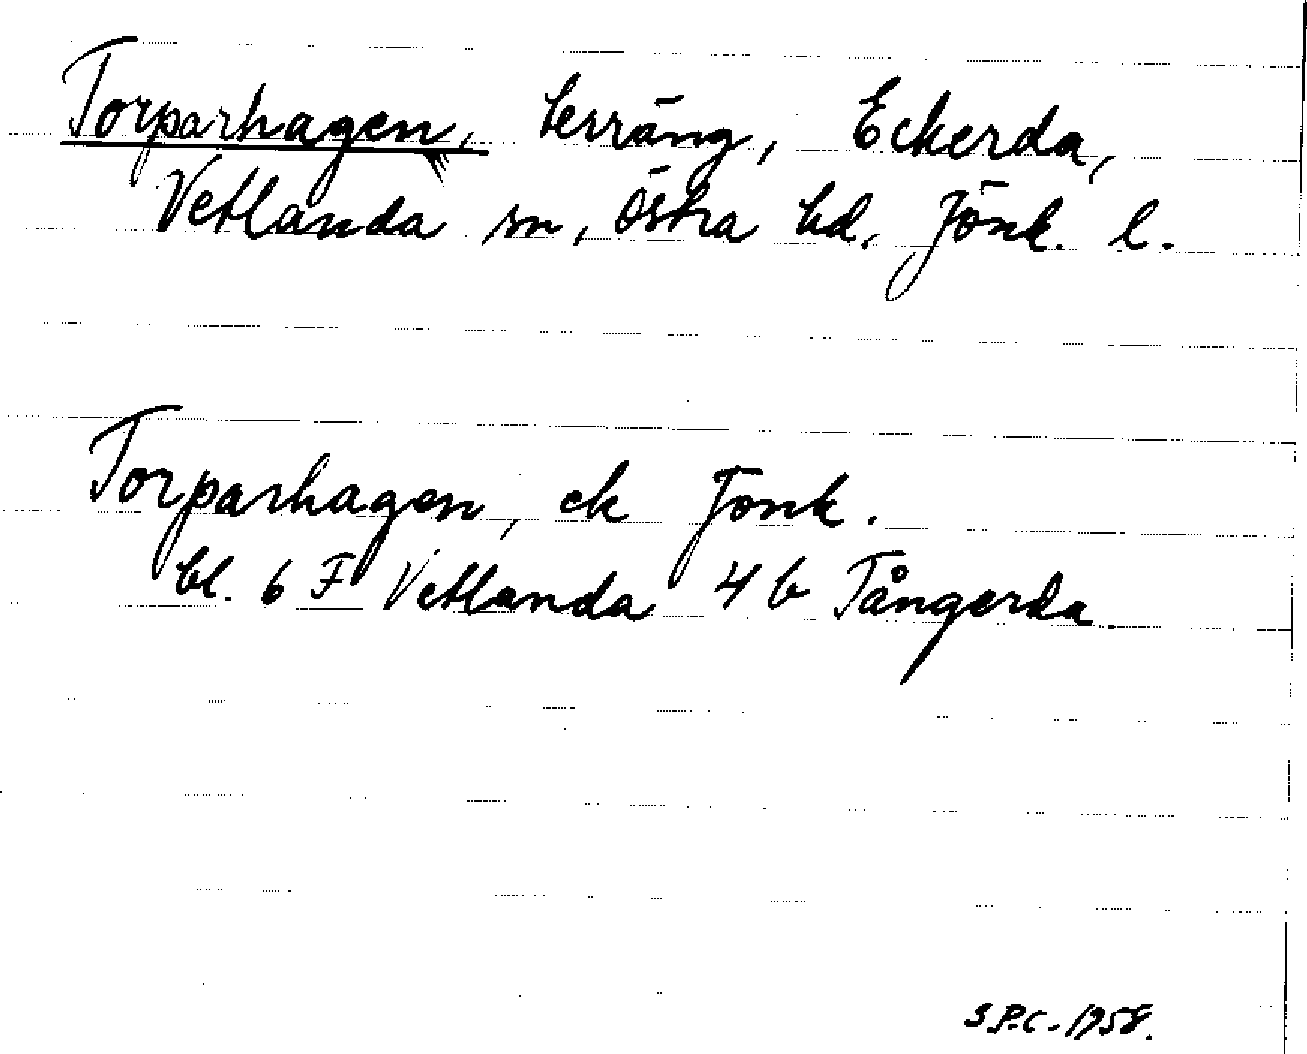 Torparhagen, terräng, Eckerda,
Vetlanda sn, Östra hd, Jönk. l.
Torparhagen, ek Jönk.
bl. 6 F Vetlanda 4 b Tångerda
S.P.C. 1958.